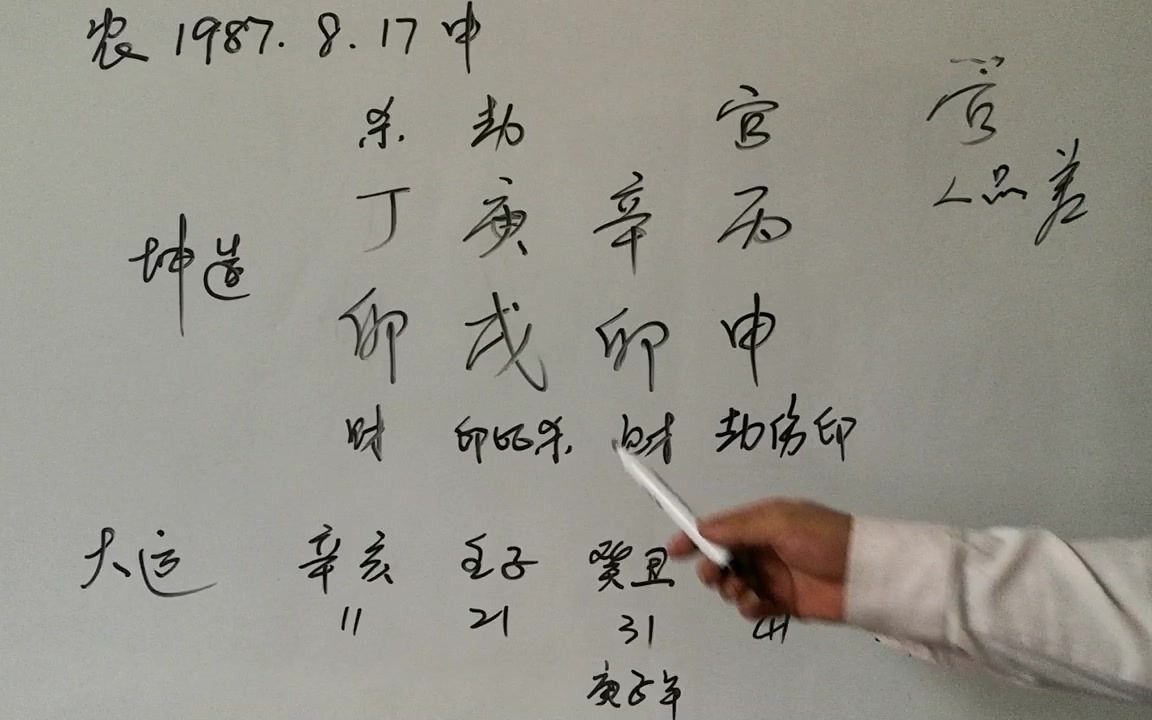 农 1987. 8. 17 申
杀 劫 官
官
人品差
丁 庚 辛 丙
坤造
卯 戌 卯 申
财 印比杀 财 劫伤印
大运 辛亥 壬子 癸丑
11 21 31 41
庚子年